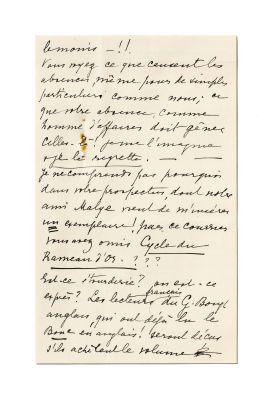 lemonis — !!
Vous voyez ce que causent les
absences, même pour de simples
particuliers comme nous; ce
que votre absence, comme
homme d'affaires doit gêner
celles. Je l'imagine
& je le regrette. — —
Je ne comprends pas pourquoi
dans votre prospectus, dont notre
ami Malye vient de m'
un exemplaire! par ce courrier
vous avez omis Cycle du
Rameau d'Or. ? ? ?
Est-ce étourderie? ou est-ce
exprès? Les lecteurs français du G. Boug
anglais, qui ont déjà lu le
Bone en anglais! seront déçus
s'ils achètent le volume